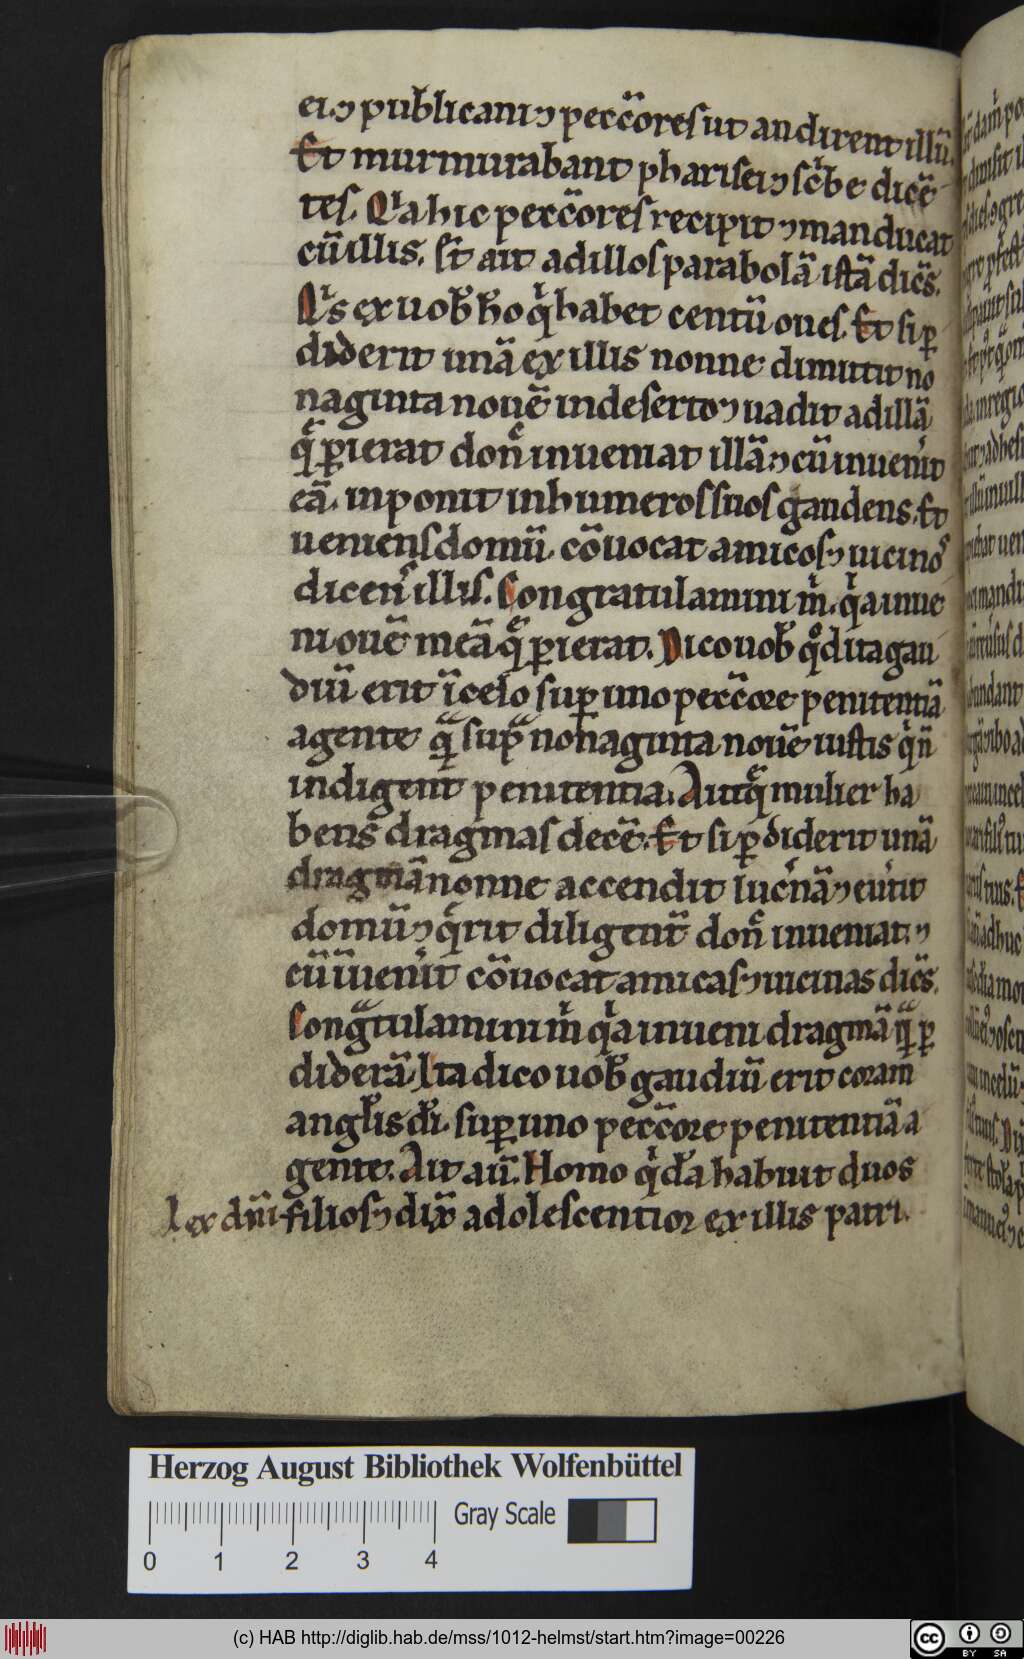 ei ⁊ publicani ⁊ pecc̄ores ut audirent illū.
Et murmurabant pharisei ⁊ sc̄be dicē
tes. Qͥa hic pecc̄ores recipit ⁊ manducat
cū illis. Et ait ad illos parabolā istā dicē̄s.
Qͥs ex uob̄ ho qͥ habet centū oues. Et si ꝑ
diderit unā ex illis nonne dimittit no
naginta nouē in deserto ⁊ uadit ad illā
q̄ ꝑierat donͨ inueniat illā ⁊ cū inuenͥit
eā. inponit in humeros suos gaudens. Et
ueniens domū. cōuocat amicos ⁊ uicinos
dicens illis. Congratulamini mͥ. qͥa inue
ni ouē meā q̄ ꝑierat. Dico uob̄ qͦd ita gau
diū erit ī celo suꝑ uno pecc̄ore penitentiā
agente qᷓ sup nonaginta nouē iustis qͥ n̄
indigent penitentia. Aut q̄ mulier ha
bens dragmas decē. Et si ꝑdiderit unā
dragmā nonne accendit lucͬnā ⁊ euͬtit
domū ⁊ qͥrit diligent̄ donͨ inueniat. ⁊
cū īuenͥit cōuocat amicas ⁊ uicinas dicē̄s.
Congᷓtulamini mͥ qͥa inueni dragmā qᷓ ꝑ
diderā. Ita dico uob̄ gaudiū erit coram
angl̄is dī. suꝑ uno pecc̄ore penitentiā a
gente. Ait aū. Homo qͥdā habuit duos
lex dn̄i filios ⁊ dix̄ adolescentior ex illis patri.
Herzog August Bibliothek Wolfenbüttel
Gray Scale
0 1 2 3 4
(c) HAB http://diglib.hab.de/mss/1012-helmst/start.htm?image=00226
cc BY SA